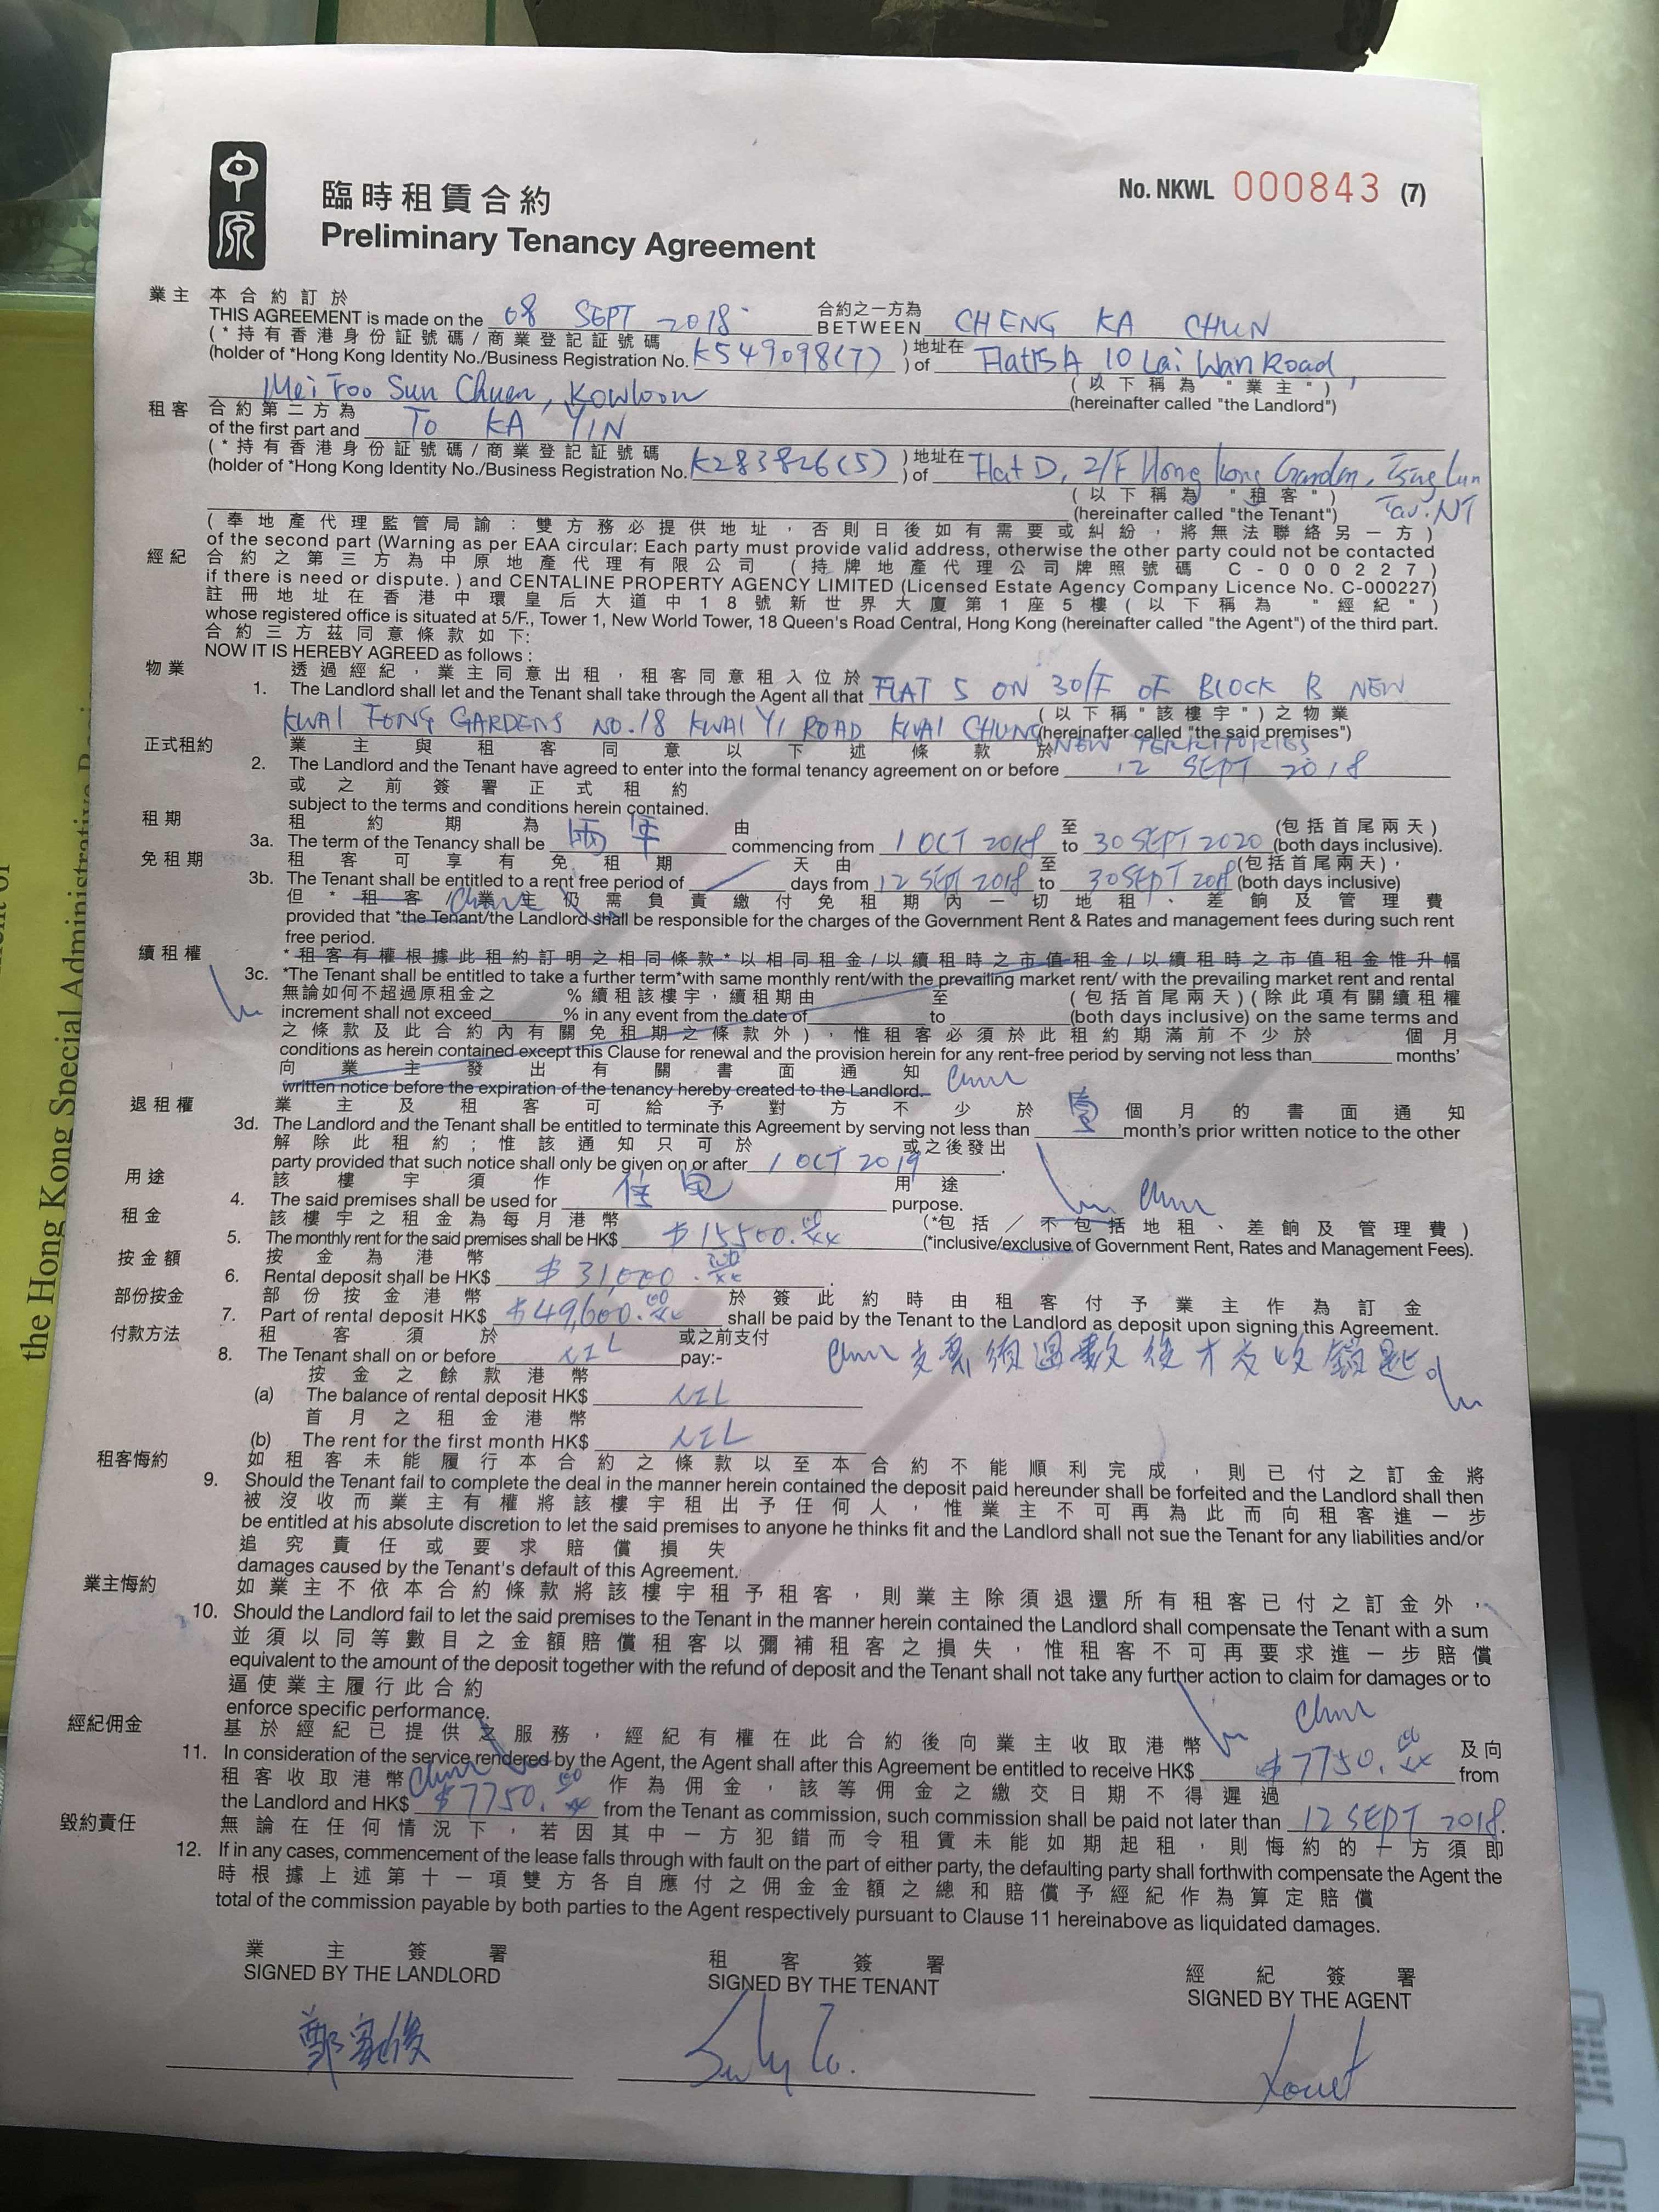 中原
臨時租賃合約
Preliminary Tenancy Agreement
No. NKWL 000843 (7)
業主 本合約訂於 合約之一方為
THIS AGREEMENT is made on the 08 SEPT 2018 BETWEEN CHENG KA CHUN
(*持有香港身份証號碼/商業登記証號碼 )地址在
(holder of *Hong Kong Identity No./Business Registration No. K549098(7) ) of Flat 15A 10 Lai Wan Road,
Mei Foo Sun Chuen, Kowloon (以下稱為"業主")
(hereinafter called "the Landlord")
租客 合約第二方為
of the first part and TO KA YIN
(*持有香港身份証號碼/商業登記証號碼 )地址在
(holder of *Hong Kong Identity No./Business Registration No. K283826(5) ) of Flat D, 2/F Hong Kong Garden, Tsing Lun
(以下稱為"租客")
(hereinafter called "the Tenant") Tau. NT
(奉地產代理監管局諭：雙方務必提供地址，否則日後如有需要或糾紛，將無法聯絡另一方)
of the second part (Warning as per EAA circular: Each party must provide valid address, otherwise the other party could not be contacted
經紀 合約之第三方為中原地產代理有限公司 (持牌地產代理公司牌照號碼 C-000227)
if there is need or dispute. ) and CENTALINE PROPERTY AGENCY LIMITED (Licensed Estate Agency Company Licence No. C-000227)
註冊地址在香港中環皇后大道中18號新世界大廈第1座5樓(以下稱為"經紀")
whose registered office is situated at 5/F., Tower 1, New World Tower, 18 Queen's Road Central, Hong Kong (hereinafter called "the Agent") of the third part.
合約三方茲同意條款如下:
NOW IT IS HEREBY AGREED as follows :
物業 透過經紀，業主同意出租，租客同意租入位於
1. The Landlord shall let and the Tenant shall take through the Agent all that FLAT 5 ON 30/F OF BLOCK B NEW
KWAI FONG GARDENS NO.18 KWAI YI ROAD KWAI CHUNG (以下稱"該樓宇")之物業
(hereinafter called "the said premises")
NEW TERRITORIES
正式租約 業主與租客同意以下述條款於
2. The Landlord and the Tenant have agreed to enter into the formal tenancy agreement on or before 12 SEPT 2018
或之前簽署正式租約
subject to the terms and conditions herein contained.
租期 租約期為 由 至 (包括首尾兩天)
3a. The term of the Tenancy shall be 兩年 commencing from 1 OCT 2018 to 30 SEPT 2020 (both days inclusive).
免租期 租客可享有免租期 天由 至 (包括首尾兩天)，
3b. The Tenant shall be entitled to a rent free period of days from 12 SEPT 2018 to 30 SEPT 2018 (both days inclusive)
但*租客/業主仍需負責繳付免租期內一切地租、差餉及管理費
provided that *the Tenant/the Landlord shall be responsible for the charges of the Government Rent & Rates and management fees during such rent
free period.
續租權 *租客有權根據此租約訂明之相同條款*以相同租金/以續租時之市值租金/以續租時之市值租金惟升幅
3c. *The Tenant shall be entitled to take a further term*with same monthly rent/with the prevailing market rent/ with the prevailing market rent and rental
無論如何不超過原租金之 %續租該樓宇，續租期由 至 (包括首尾兩天)(除此項有關續租權
increment shall not exceed % in any event from the date of to (both days inclusive) on the same terms and
之條款及此合約內有關免租期之條款外)，惟租客必須於此租約期滿前不少於 個月
conditions as herein contained except this Clause for renewal and the provision herein for any rent-free period by serving not less than months'
向業主發出有關書面通知
written notice before the expiration of the tenancy hereby created to the Landlord.
退租權 業主及租客可給予對方不少於 壹 個月的書面通知
3d. The Landlord and the Tenant shall be entitled to terminate this Agreement by serving not less than month's prior written notice to the other
解除此租約；惟該通知只可於 或之後發出
party provided that such notice shall only be given on or after 1 OCT 2019.
用途 該樓宇須作 用途
4. The said premises shall be used for 住宅 purpose.
租金 該樓宇之租金為每月港幣 (*包括/不包括地租、差餉及管理費)
5. The monthly rent for the said premises shall be HK$ $15500.00 (*inclusive/exclusive of Government Rent, Rates and Management Fees).
按金額 按金為港幣
6. Rental deposit shall be HK$ $31,000.00.
部份按金 部份按金港幣 於簽此約時由租客付予業主作為訂金
7. Part of rental deposit HK$ $49,600.00 shall be paid by the Tenant to the Landlord as deposit upon signing this Agreement.
付款方法 租客須於 或之前支付
8. The Tenant shall on or before NIL pay:- 支票須過數後才交收鎖匙
按金之餘款港幣
(a) The balance of rental deposit HK$ NIL
首月之租金港幣
(b) The rent for the first month HK$ NIL
租客悔約 如租客未能履行本合約之條款以至本合約不能順利完成，則已付之訂金將
9. Should the Tenant fail to complete the deal in the manner herein contained the deposit paid hereunder shall be forfeited and the Landlord shall then
被沒收而業主有權將該樓宇租出予任何人，惟業主不可再為此而向租客進一步
be entitled at his absolute discretion to let the said premises to anyone he thinks fit and the Landlord shall not sue the Tenant for any liabilities and/or
追究責任或要求賠償損失
damages caused by the Tenant's default of this Agreement.
業主悔約 如業主不依本合約條款將該樓宇租予租客，則業主除須退還所有租客已付之訂金外，
10. Should the Landlord fail to let the said premises to the Tenant in the manner herein contained the Landlord shall compensate the Tenant with a sum
並須以同等數目之金額賠償租客以彌補租客之損失，惟租客不可再要求進一步賠償
equivalent to the amount of the deposit together with the refund of deposit and the Tenant shall not take any further action to claim for damages or to
逼使業主履行此合約
enforce specific performance.
經紀佣金 基於經紀已提供之服務，經紀有權在此合約後向業主收取港幣 及向
11. In consideration of the service rendered by the Agent, the Agent shall after this Agreement be entitled to receive HK$ $7750.00 from
租客收取港幣 作為佣金，該等佣金之繳交日期不得遲過
the Landlord and HK$ $7750.00 from the Tenant as commission, such commission shall be paid not later than 12 SEPT 2018.
毀約責任 無論在任何情況下，若因其中一方犯錯而令租賃未能如期起租，則悔約的一方須即
12. If in any cases, commencement of the lease falls through with fault on the part of either party, the defaulting party shall forthwith compensate the Agent the
時根據上述第十一項雙方各自應付之佣金金額之總和賠償予經紀作為算定賠償
total of the commission payable by both parties to the Agent respectively pursuant to Clause 11 hereinabove as liquidated damages.
業主簽署 租客簽署 經紀簽署
SIGNED BY THE LANDLORD SIGNED BY THE TENANT SIGNED BY THE AGENT
the Hong Kong Special Administrative